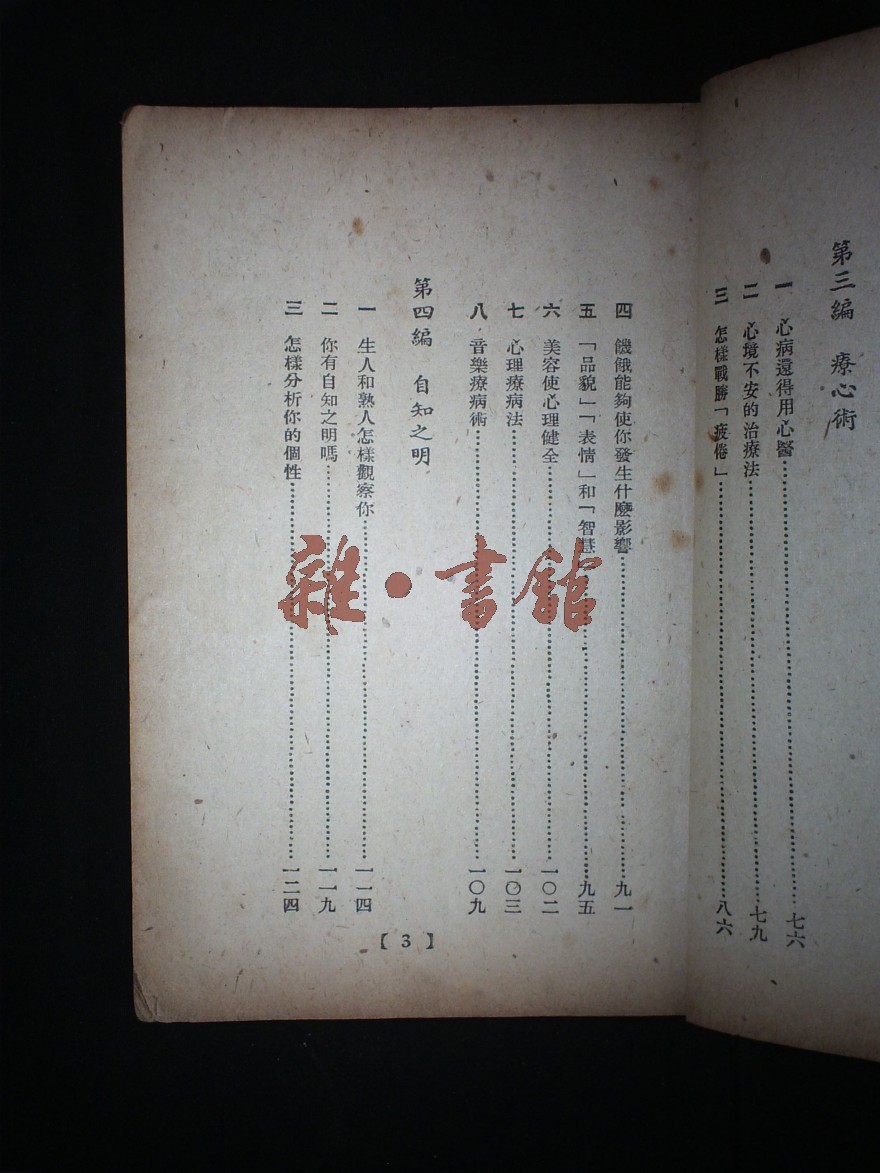 第三編 療心術
一 心病還得用心醫⋯⋯⋯⋯⋯⋯七六
二 心境不安的治療法⋯⋯⋯⋯⋯⋯七九
三 怎樣戰勝「疲倦」⋯⋯⋯⋯⋯⋯八六
四 饑餓能夠使你發生什麼影響⋯⋯⋯⋯⋯⋯九一
五 「品貌」「表情」和「智慧⋯⋯⋯⋯⋯⋯九五
六 美容使心理健全⋯⋯⋯⋯⋯⋯一〇二
七 心理療病法⋯⋯⋯⋯⋯⋯一〇三
八 音樂療病術⋯⋯⋯⋯⋯⋯一〇九
第四編 自知之明
一 生人和熟人怎樣觀察你⋯⋯⋯⋯⋯⋯一一四
二 你有自知之明嗎⋯⋯⋯⋯⋯⋯一一九
三 怎樣分析你的個性⋯⋯⋯⋯⋯⋯一二四
【3】
雜·書館